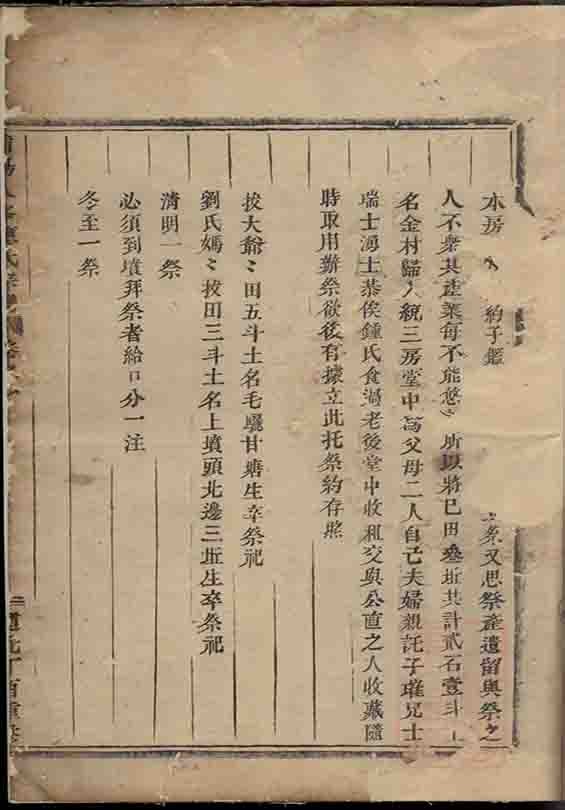 本房 約子鑑 祭又思祭產遺留與祭之
人不桒其產業每不能悠〻所以將已田叁坵共計貳石壹斗土
名金村歸入統三房堂中為父母二人自己夫婦親託子瓘兄士
瑞士湧士恭俟鍾氏食過老後堂中收租交與公直之人收藏隨
時取用辦祭欲後有據立此托祭約存照
拨大爺〻田五斗土名毛曬甘塘生卒祭祀
劉氏媽〻拨田三斗土名上墳頭北邊三坵生卒祭祀
清明一祭
必須到墳拜祭者給口分一注
冬至一祭